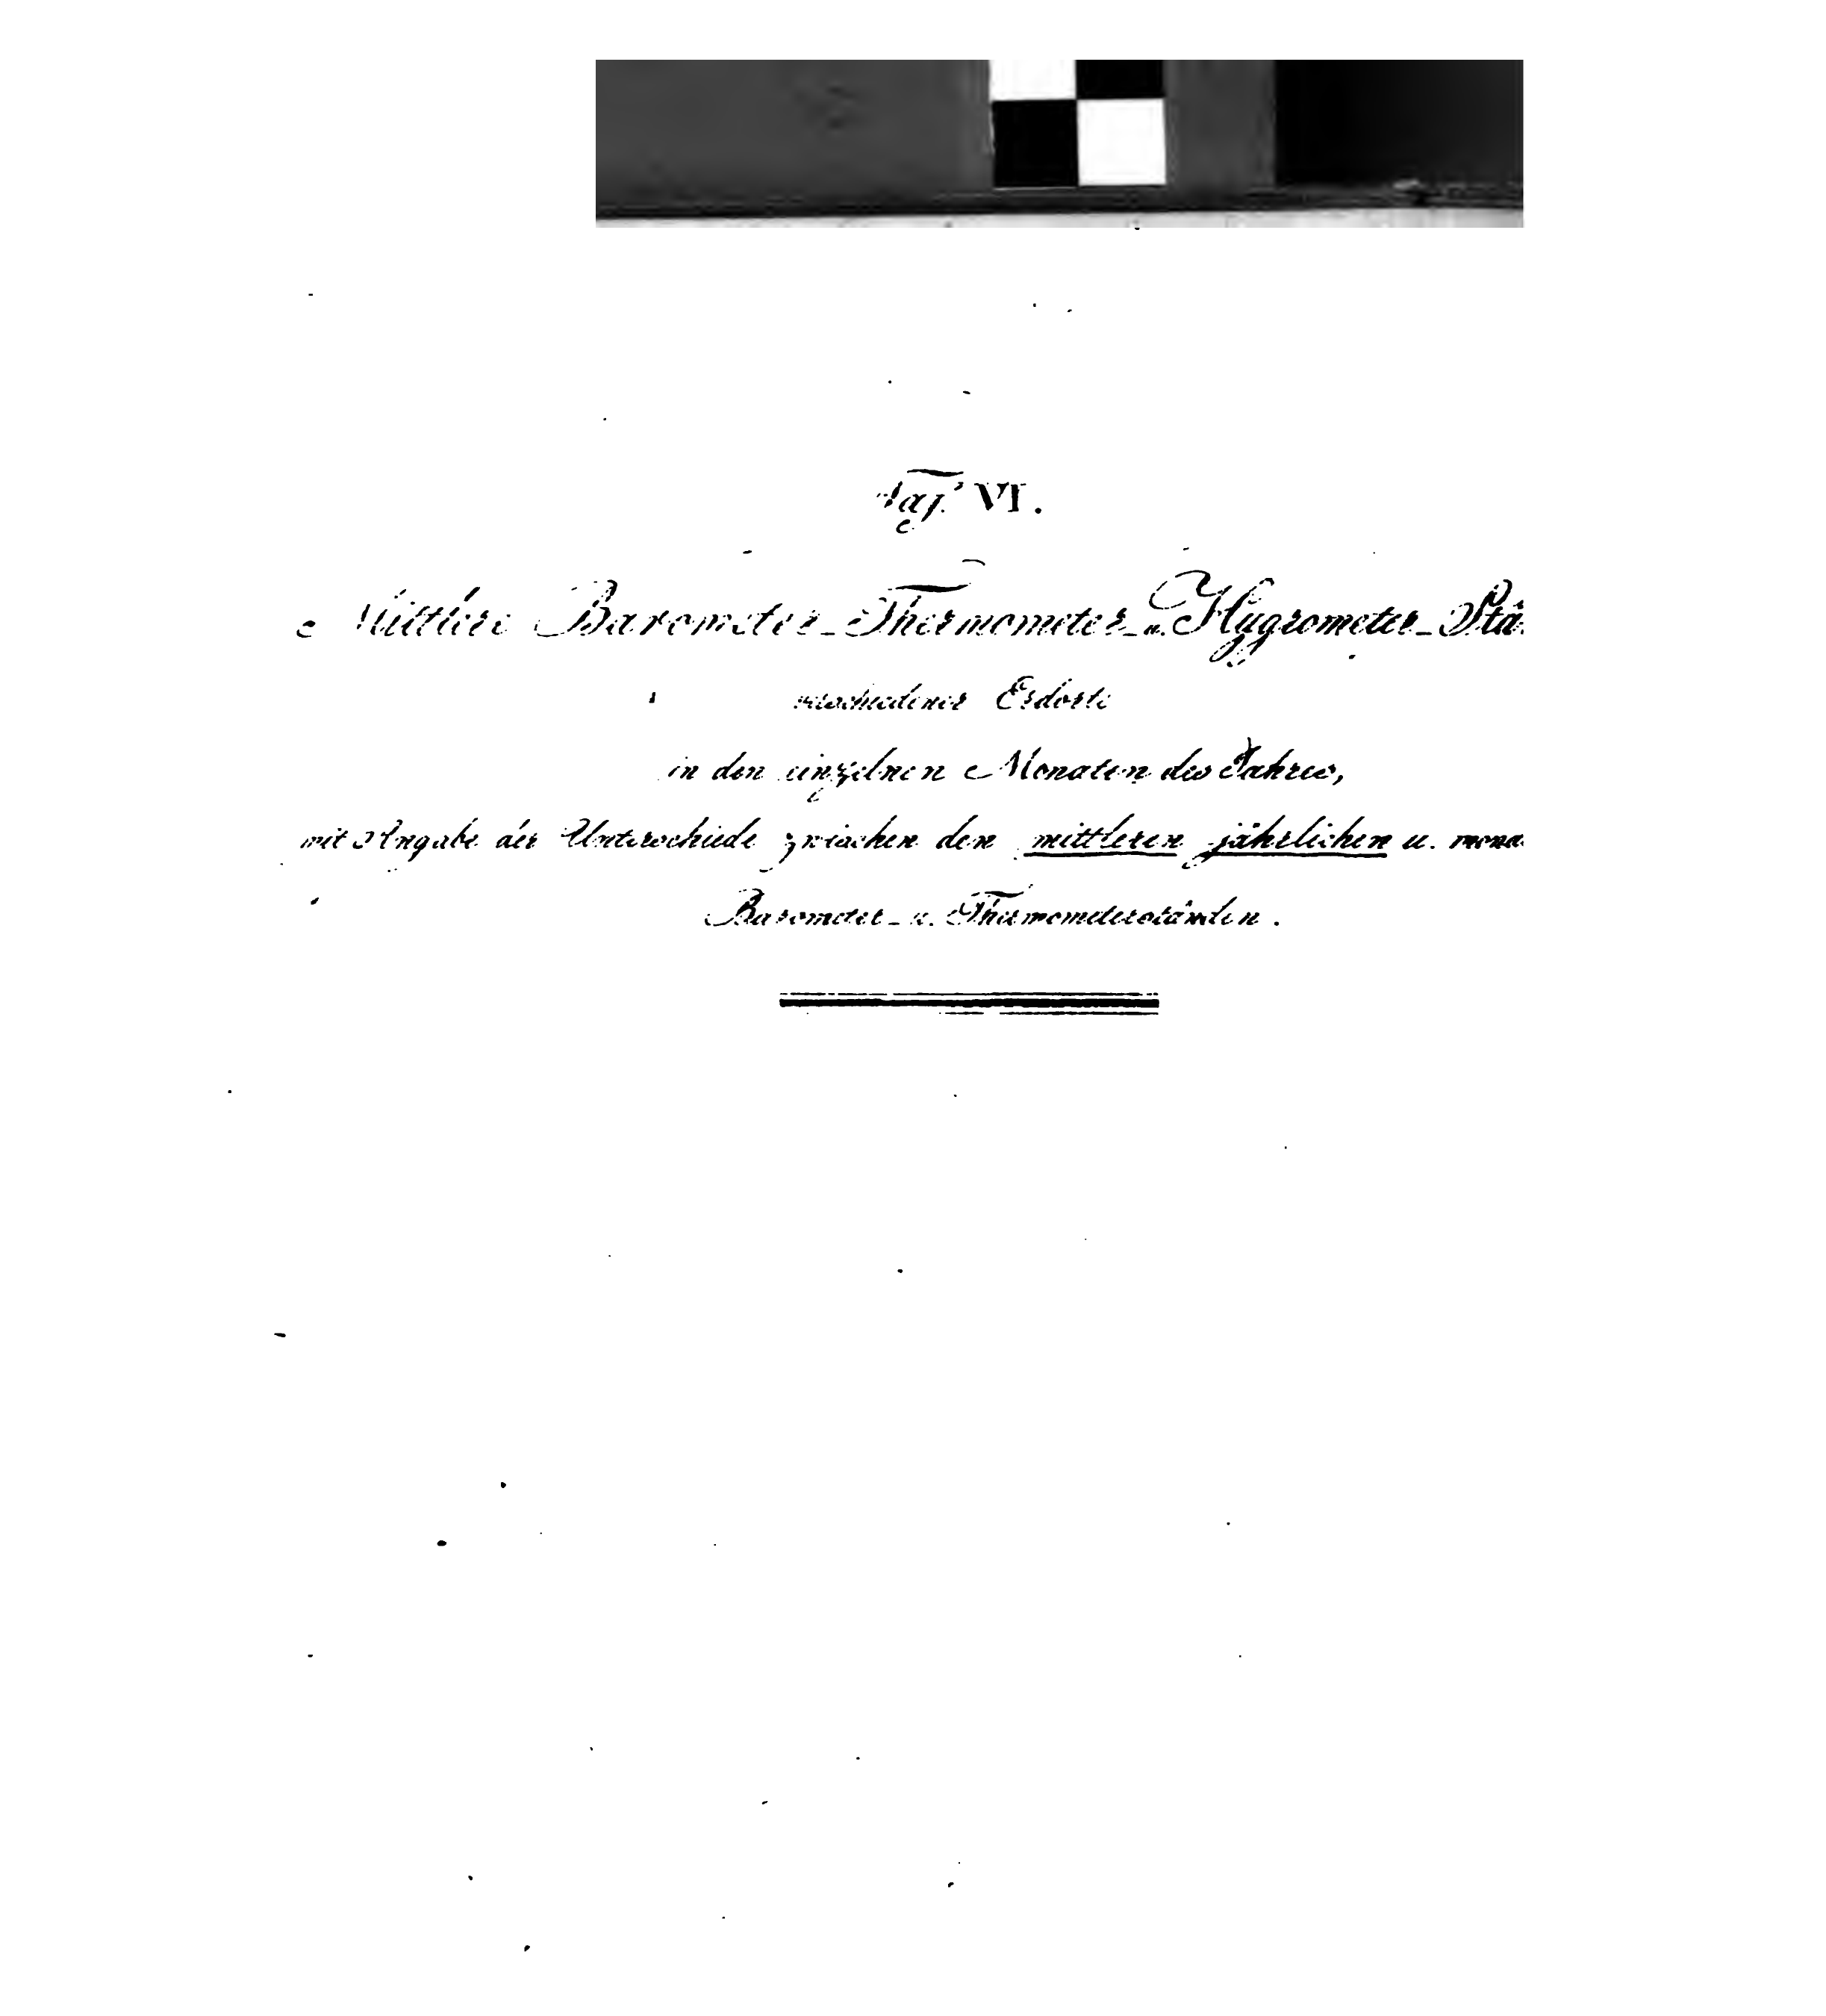 Taf. VI.
Mittlere Barometer-Thermometer-u. Hygrometer-Stä
verschiedener Erdorte
in den einzelnen Monaten des Jahres,
mit Angabe der Unterschiede zwischen den mittleren jährlichen u. mona
Barometer-u. Thermometerständen.